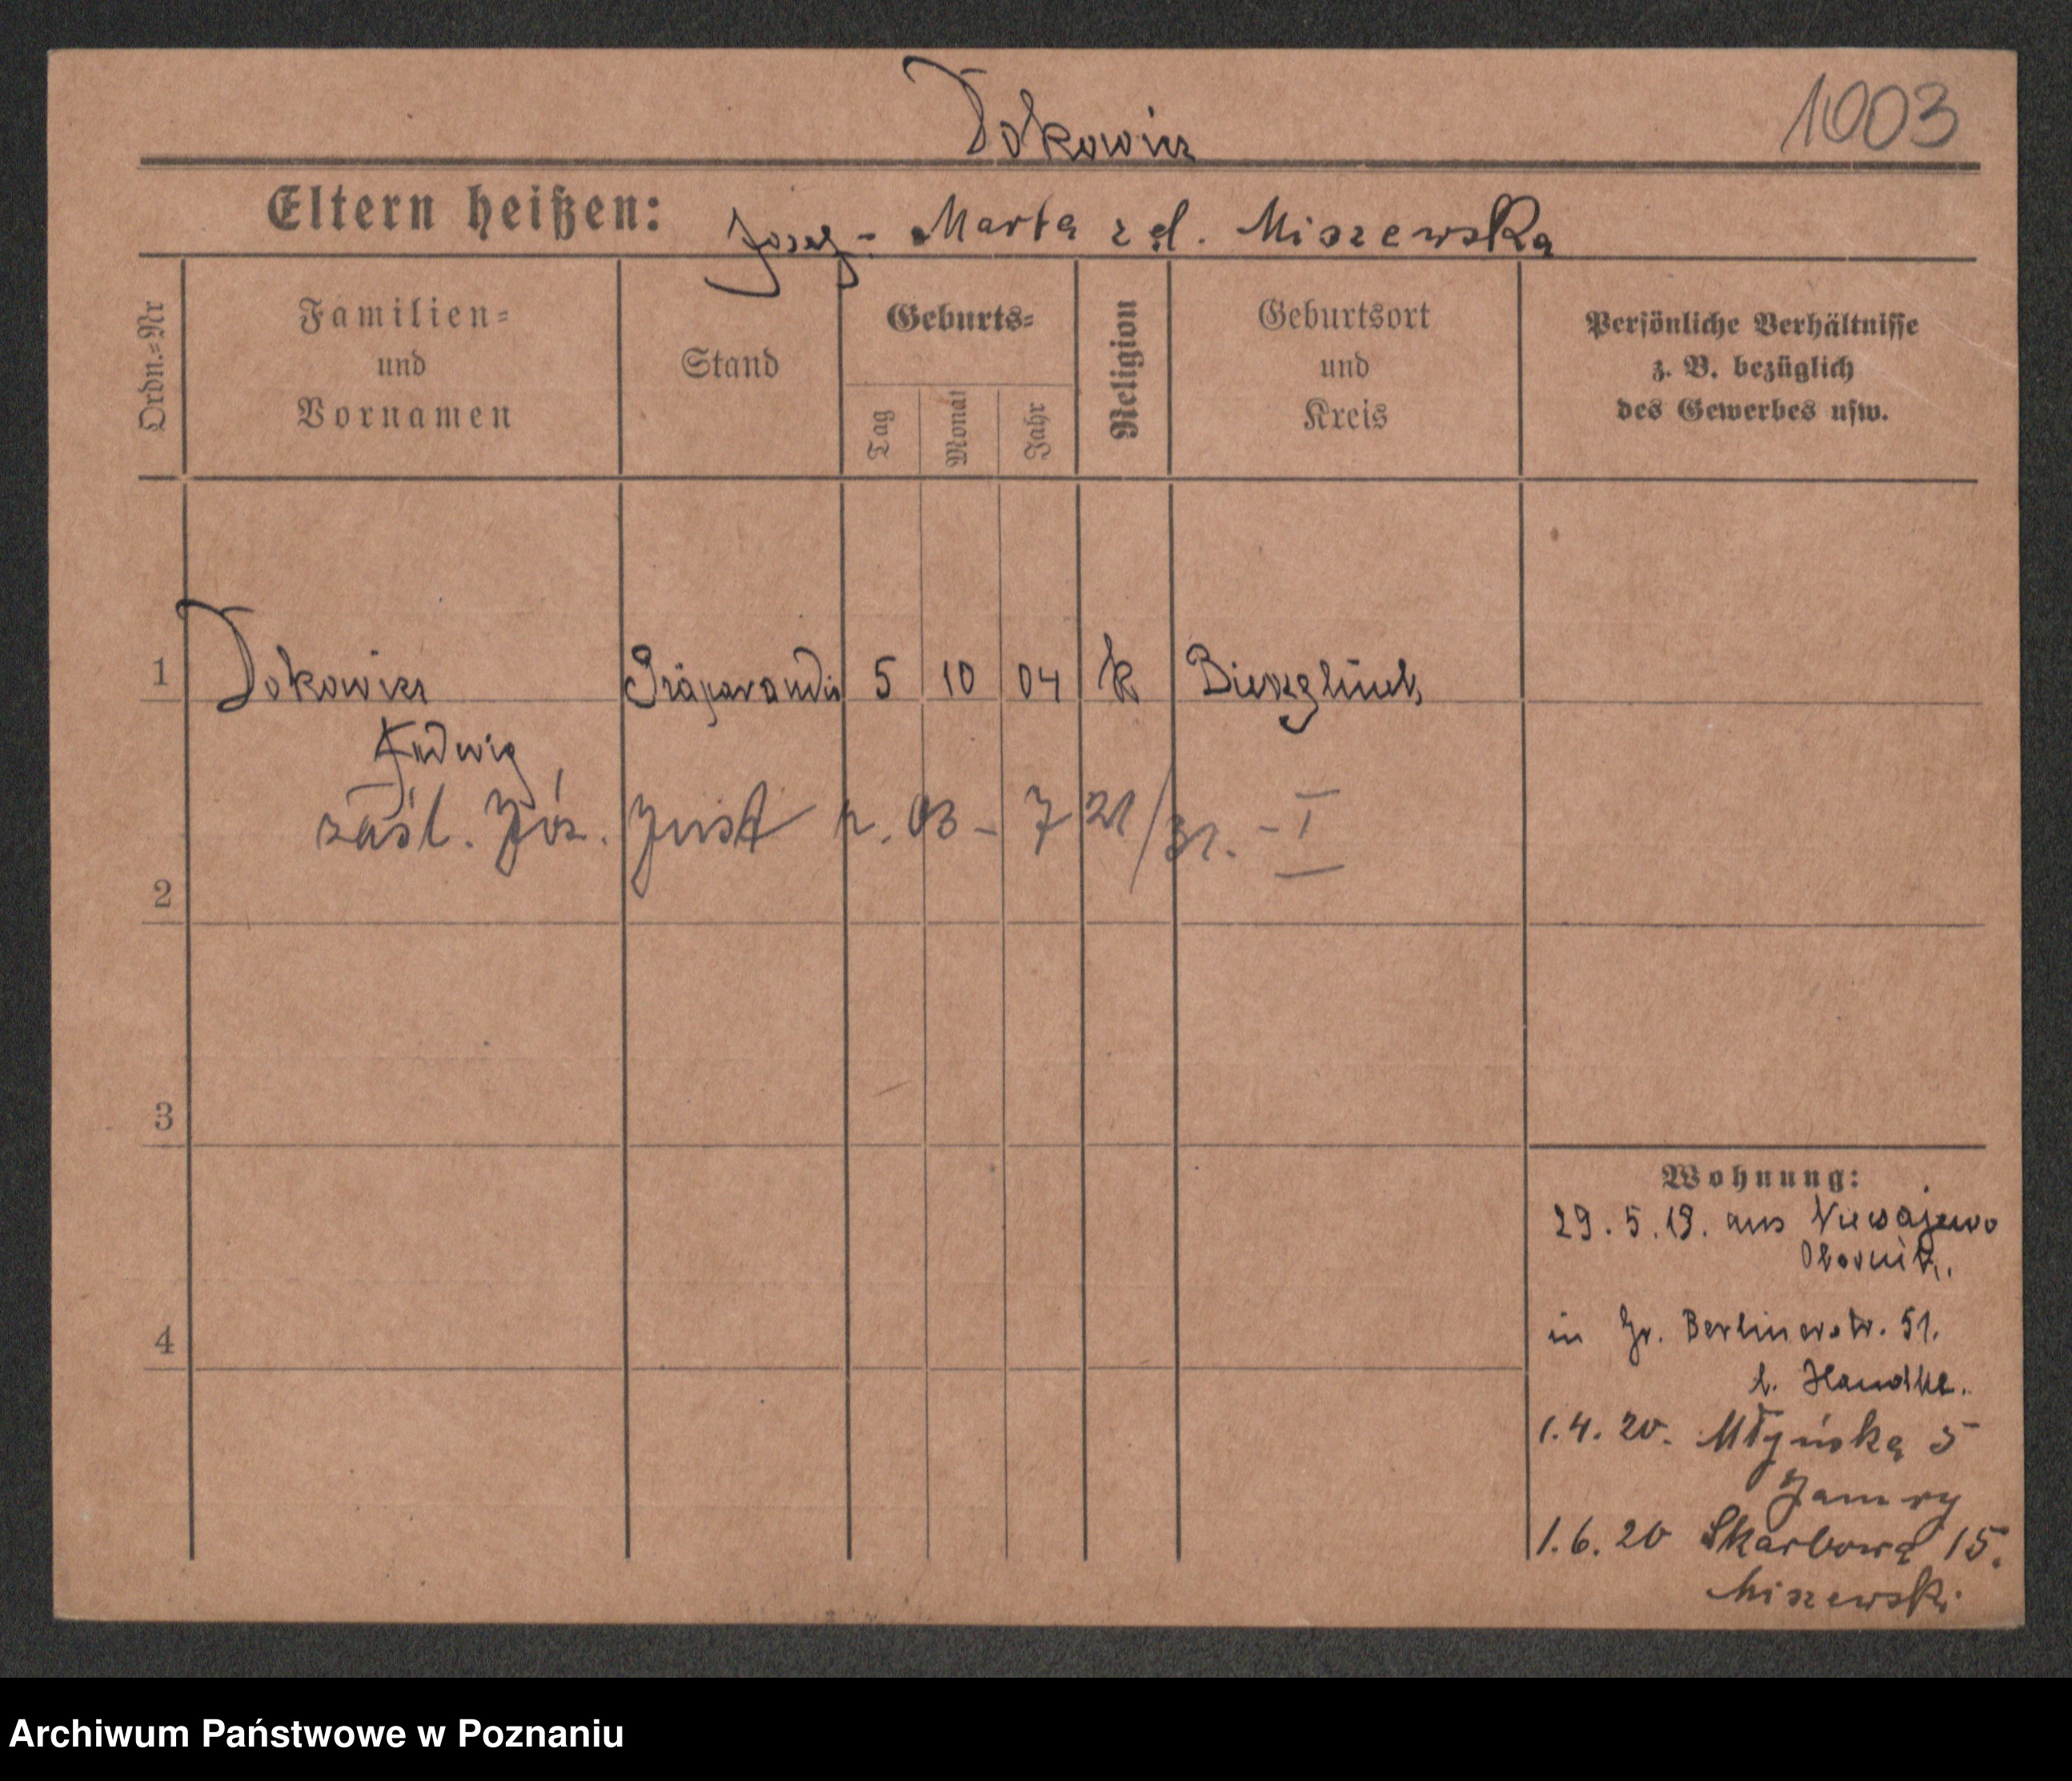 Dokowicz
1003
Eltern heißen: Josef - Marta z d. Miszewska
Ordn.=Nr
Familien=
und
Vornamen
Stand
Geburts=
Tag
Monat
Jahr
Religion
Geburtsort
und
Kreis
Persönliche Verhältnisse
z. B. bezüglich
des Gewerbes usw.
1 Dokowicz Präparandis 5 10 04 k
Ludwig
zaśl. Józ. Just r. 03 - 721/31. - I
2
3
4
Wohnung:
29.5.19. aus
Obornik.
in Gr. Berlinerstr. 51.
b. Handke.
1.4.20. Młyńska 5
1.6.20 Skarbowa 15.
Miszewski
Archiwum Państwowe w Poznaniu